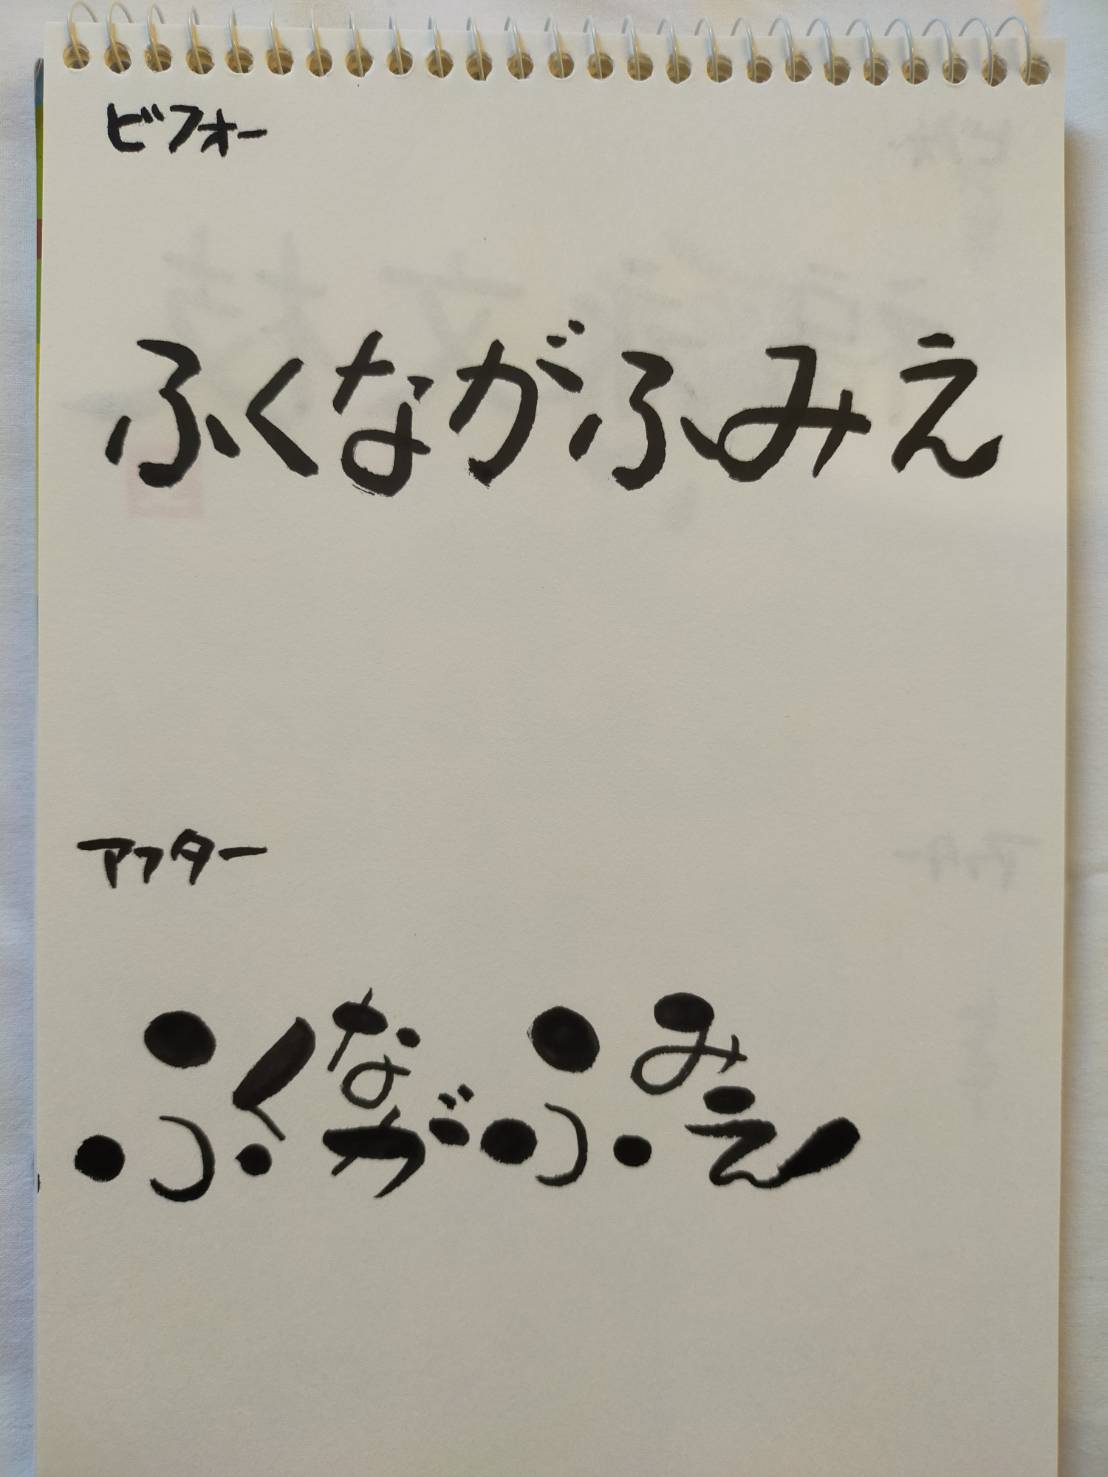 ビフォー
ふくながふみえ
アフター
ふくながふみえ